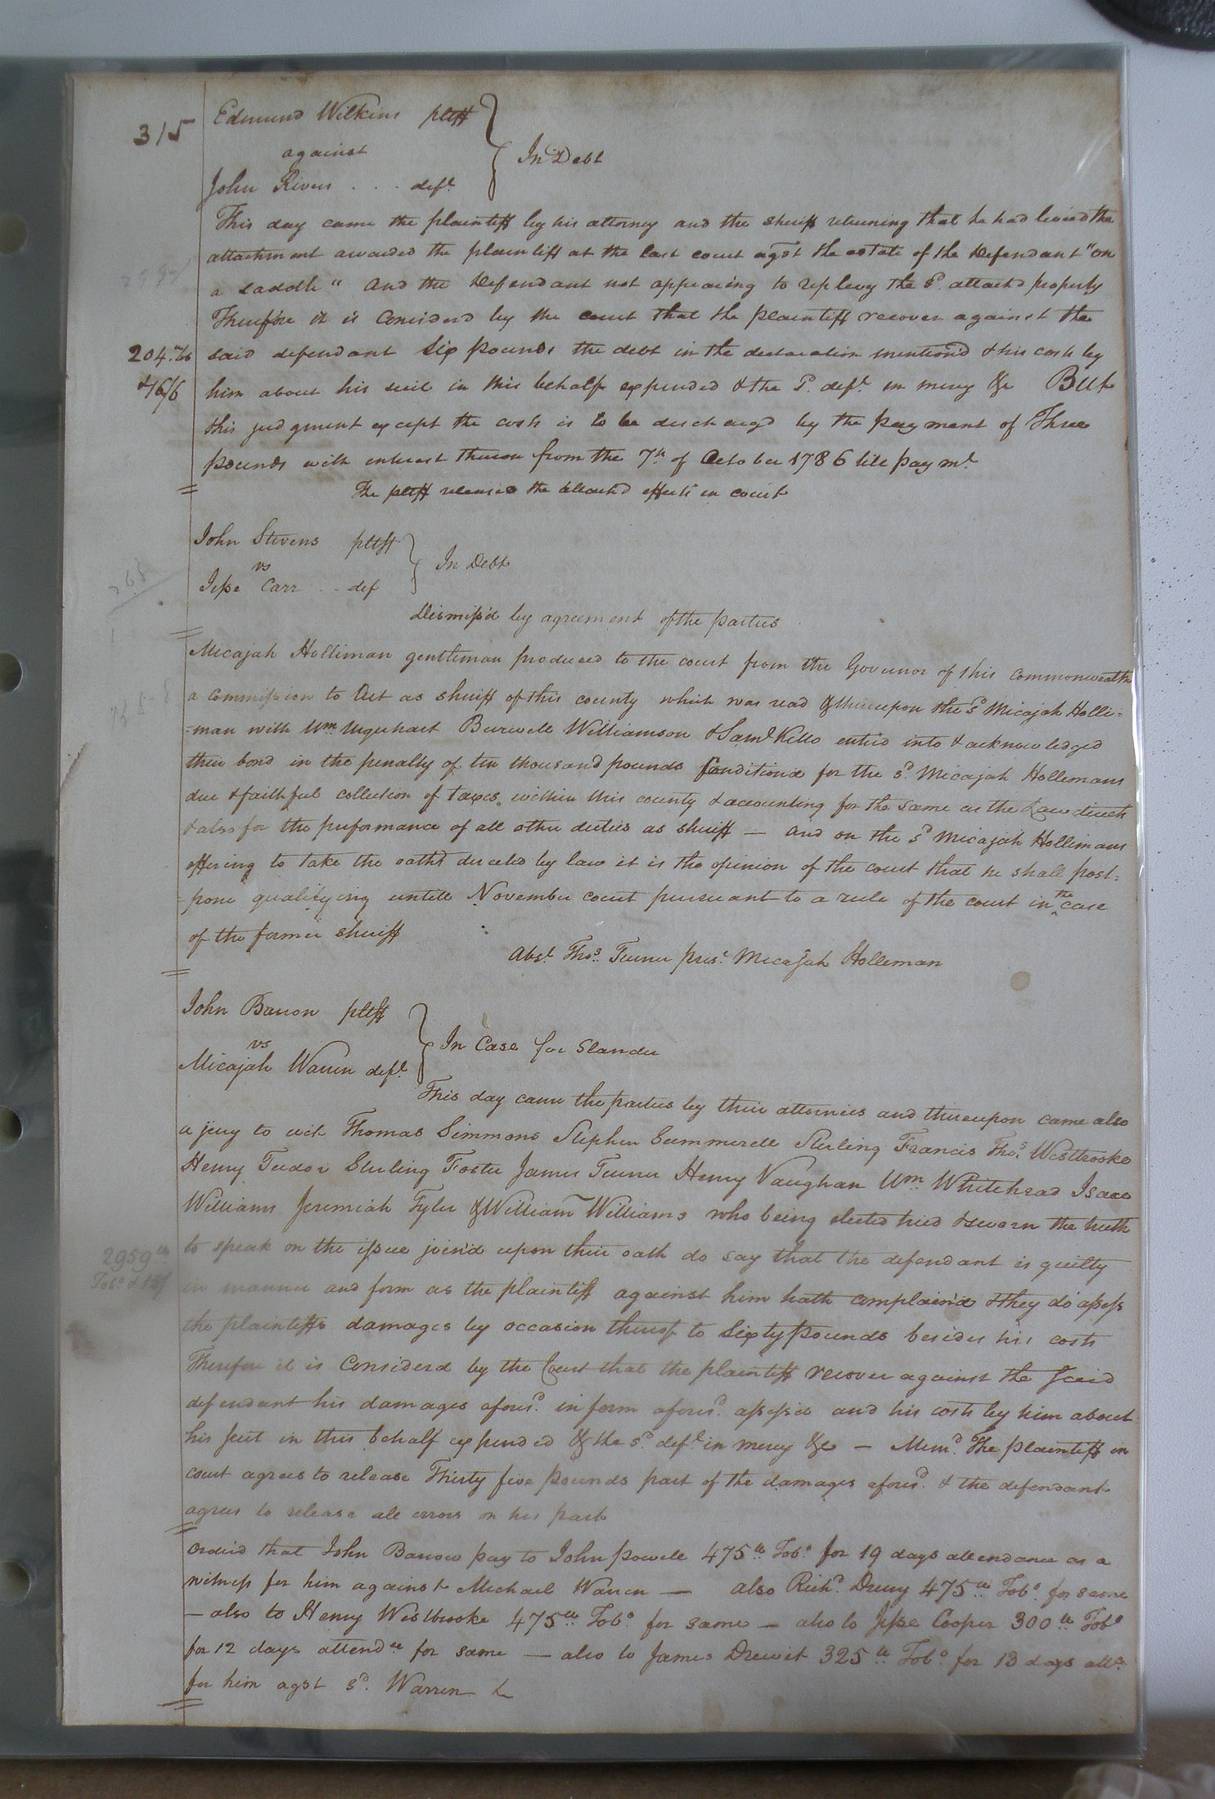 315
Edmund Wilkins pltff
against
In Debt
John Rivers . . . deft
This day came the plaintiff by his attorney and the sheriff returning that he had levied the
attachment awarded the plaintiff at the last court agst the estate of the Defendant "on
a saddle" And the Defendant not appearing to replevy the sd attachd property
Therefore it is Considerd by the court that the plaintiff recover against the
204 Tb
&16/6
said defendant Six pounds the debt in the declaration mentiond & his costs by
him about his suit in this behalf expended & the sd deft in mercy &c But
this judgment except the costs is to be dischargd by the payment of Three
pounds with interest thereon from the 7th of October 1786 till paymt
The pltff releases the attachd effects in court
John Stevens pltff
vs
In Debt
Jesse Carr . . def
Dismissd by agreement of the parties
Micajah Holliman gentleman produced to the court from the Governor of this Commonwealth
a commission to Act as sheriff of this county which was read & thereupon the sd Micajah Holli=
=man with Wm Urquhart Burwell Williamson & Saml Kello enterd into & acknowledged
their bond in the penalty of ten thousand pounds Conditiond for the sd Micajah Hollemans
due & faithful collection of taxes within this county & accounting for the same as the Law directs
& also for the preformance of all other duties as sheriff — and on the sd Micajah Hollemans
offering to take the oaths directed by law it is the opinion of the court that he shall post=
=pone qualifying untill November court pursuant to a rule of the court in the case
of the former sheriff
Abst Thos Turner prest Micajah Holleman
John Barrow pltff
vs
In Case for Slander
Micajah Warren deft
This day came the parties by their attornies and thereupon came also
a jury to wit Thomas Simmons Stephen Summerell Sterling Francis Thos Westbrooke
Henry Tudor Sterling Foster James Turner Henry Vaughan Wm Whitehead Isaac
Williams Jeremiah Tyler & William Williams who being elected tried & sworn the truth
2959 lb
Tobo &
to speak on the issue joind upon their oath do say that the defendant is guilty
in manner and form as the plaintiff against him hath complaind & they do assess
the plaintiffs damages by occasion thereof to Sixty pounds besides his costs
Therefore it is Considerd by the Court that the plaintiff recover against the said
defendant his damages aforesd in form aforesd assessd and his costs by him about
his suit in this behalf expended & the sd deft in mercy &c — Memd The plaintiff in
court agrees to release Thirty five pounds part of the damages aforesd & the defendant
agrees to release all errors on his part
Orderd that John Barrow pay to John powell 475 lb Tobo for 19 days attendance as a
witness for him against Michael Warren — also Richd Drury 475 lb Tobo for same
— also to Henry Westbrooke 475 lb Tobo for same — also to Jesse Cooper 300 lb Tobo
for 12 days attendce for same — also to James Drewit 325 lb Tobo for 13 days attce
for him agst sd Warren